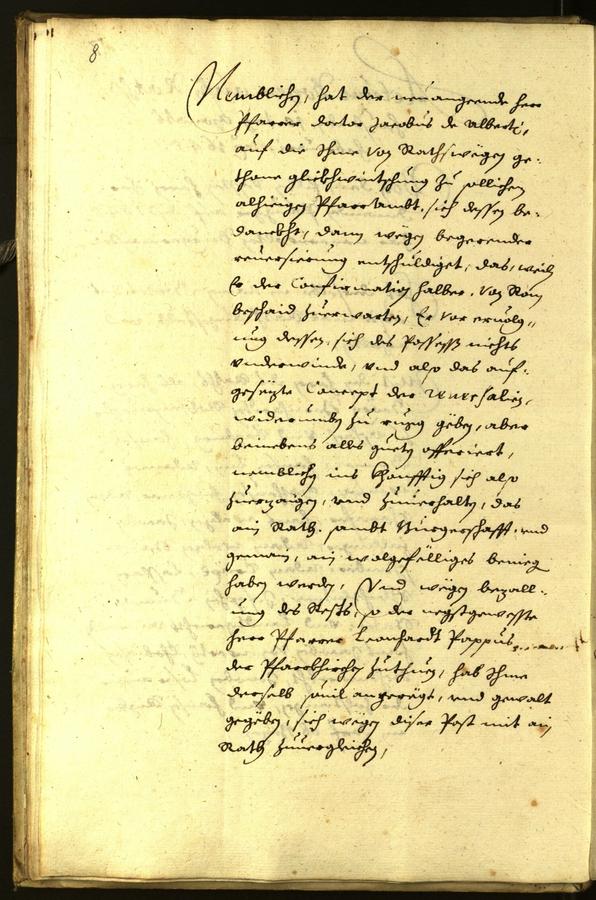 8
Nemblichen, hat der neuangeende herr
Pfarrer doctor Jacobus de Alberti,
auf die Ihme von Rathswegen ge-
thane glickhwintschung zu sollichen
alhieigen Pfarrambt, sich dessen be-
danckht, dann wegen begerender
reuersierung entschuldiget, das, weil
Er der Confirmation halber, von Rom
beschaid zuerwarten, Er vor eruolg-
ung dessen, sich des Possess nichts
vnderwinde, vnd also das auf-
gesezte Concept der Reuersalien,
widerumben zu rugg geben, aber
beinebens alles guets offeriert,
nemblichen ins Khonfftig sich also
zuerzaigen, vnd zuuerhalten, das
ain Rath, sambt Burgerschafft, vnd
gemain, ain wolgefelliges beniegen
haben werden, Vnd wegen bezall-
ung des Rests, so der negstgeweste
herr Pfarrer Leonhardt Pappus
der Pfarrkhirchen zuthuen, hab Ihme
derselb souil angeregt, vnd gewalt
gegeben, sich wegen diser Post mit ain
Rath zuuergleichen,